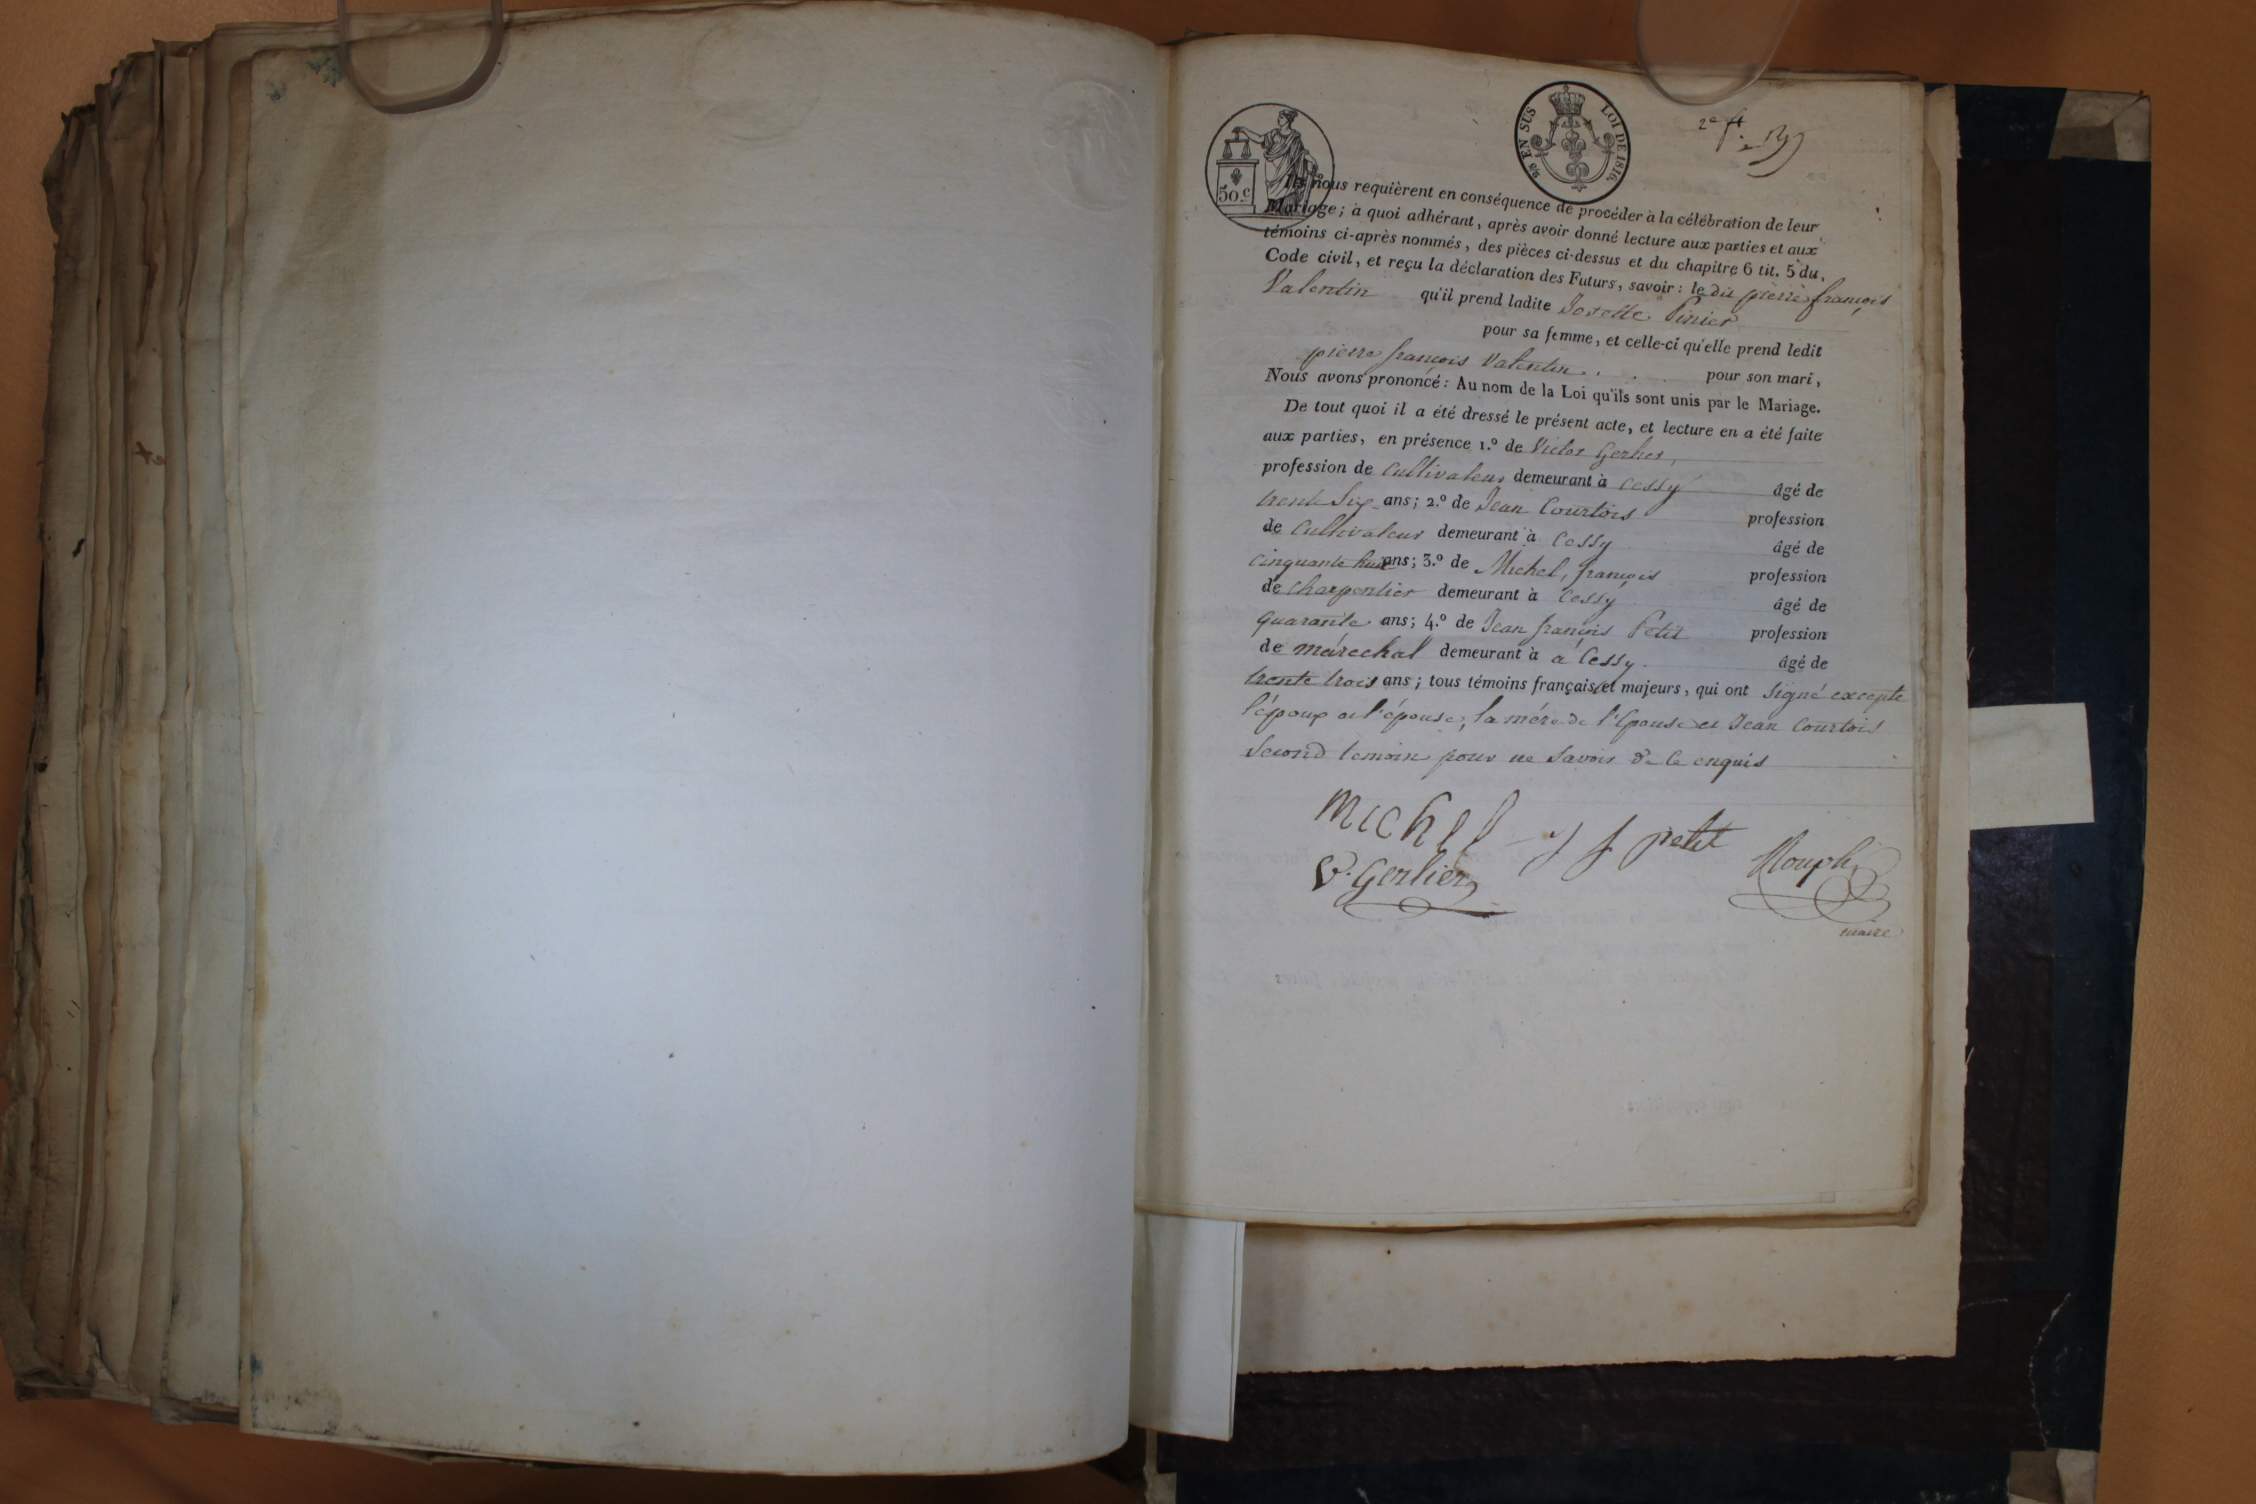 50 c
25 EN SUS LOI DE 1816.
2e ft
Ils nous requièrent en conséquence de procéder à la célébration de leur
Mariage; à quoi adhérant, après avoir donné lecture aux parties et aux
témoins ci-après nommés, des pièces ci-dessus et du chapitre 6 tit. 5 du
Code civil, et reçu la déclaration des Futurs, savoir: le dit pierre françois
Valentin qu'il prend ladite Josette Pinier
pour sa femme, et celle-ci qu'elle prend ledit
pierre françois Valentin . . . pour son mari,
Nous avons prononcé: Au nom de la Loi qu'ils sont unis par le Mariage.
De tout quoi il a été dressé le présent acte, et lecture en a été faite
aux parties, en présence 1.º de Victor Gerlier,
profession de cultivateur demeurant à Cessy âgé de
trente six ans; 2.º de Jean Courtois profession
de Cultivateur demeurant à Cessy âgé de
cinquante huit ans; 3.º de Michel, françois profession
de charpentier demeurant à Cessy âgé de
quarante ans; 4.º de Jean françois Petit profession
de maréchal demeurant à à Cessy. âgé de
trente trois ans; tous témoins français et majeurs, qui ont signé excepté
l'époux et l'épouse, la mére de l'épouse et Jean Courtois
Second temoin pour ne savoir de ce enquis
Michel J f petit
V. Gerlier
maire